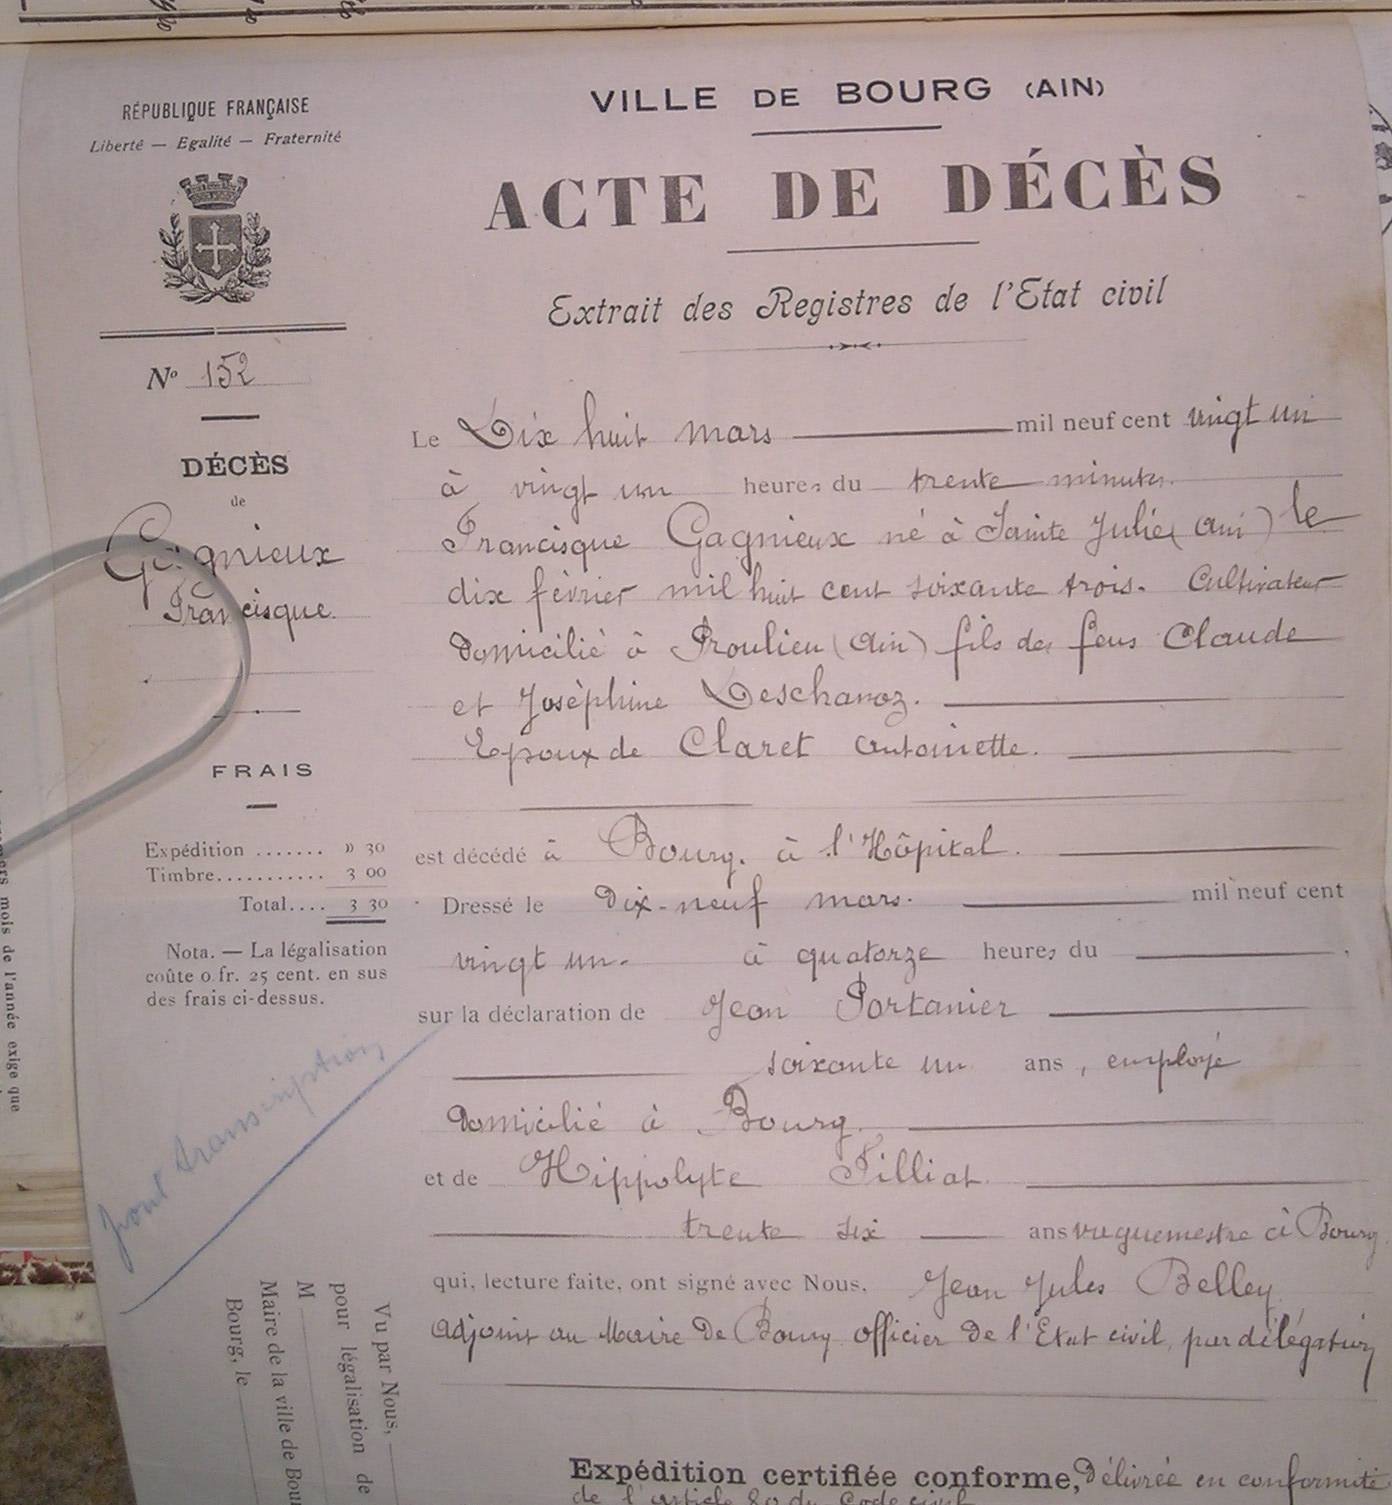 RÉPUBLIQUE FRANÇAISE
Liberté — Egalité — Fraternité
VILLE DE BOURG (AIN)
ACTE DE DÉCÈS
Extrait des Registres de l'Etat civil
N° 152
DÉCÈS
de
Gagnieux
Francisque.
FRAIS
Expédition ....... » 30
Timbre........... 3 00
Total.... 3 30
Nota. — La légalisation
coûte 0 fr. 25 cent. en sus
des frais ci-dessus.
pour transcription
Vu par Nous,
pour légalisation de
M
Maire de la ville de Bour
Bourg, le
Le Dix huit mars mil neuf cent vingt un
à vingt un heures du trente minutes.
Francisque Gagnieux né à Sainte Julie (Ain) le
dix février mil huit cent soixante trois. Cultivateur
Domicilié à Proulieu (Ain) fils des feus Claude
et Josèphine Deschavoz.
Epoux de Claret Antoinette.
est décédé à Bourg. à l'Hôpital.
Dressé le Dix-neuf mars. mil neuf cent
vingt un. à quatorze heures du
sur la déclaration de Jean Portanier
soixante un ans, employé
Domicilié à Bourg.
et de Hippolyte Tilliat
trente six ans vaguemestre à Bourg.
qui, lecture faite, ont signé avec Nous, Jean Jules Belley
Adjoint au Maire De Bourg officier De l'Etat civil, par délégation
Expédition certifiée conforme, Délivrée en conformité
de l'article 80 du Code civil
mois de l'année exige que